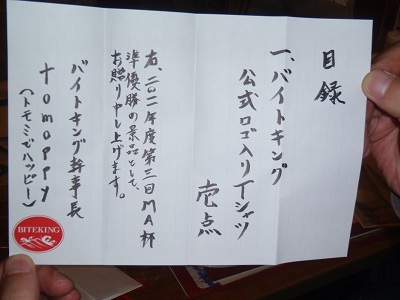 目録
一、バイトキング
公式ロゴ入りTシャツ
壱点
右、二〇一一年度第三回MA杯
準優勝の景品として、
お贈り申し上げます。
バイトキング幹事長
tomoppy
(トモミでハッピー)
BITEKING